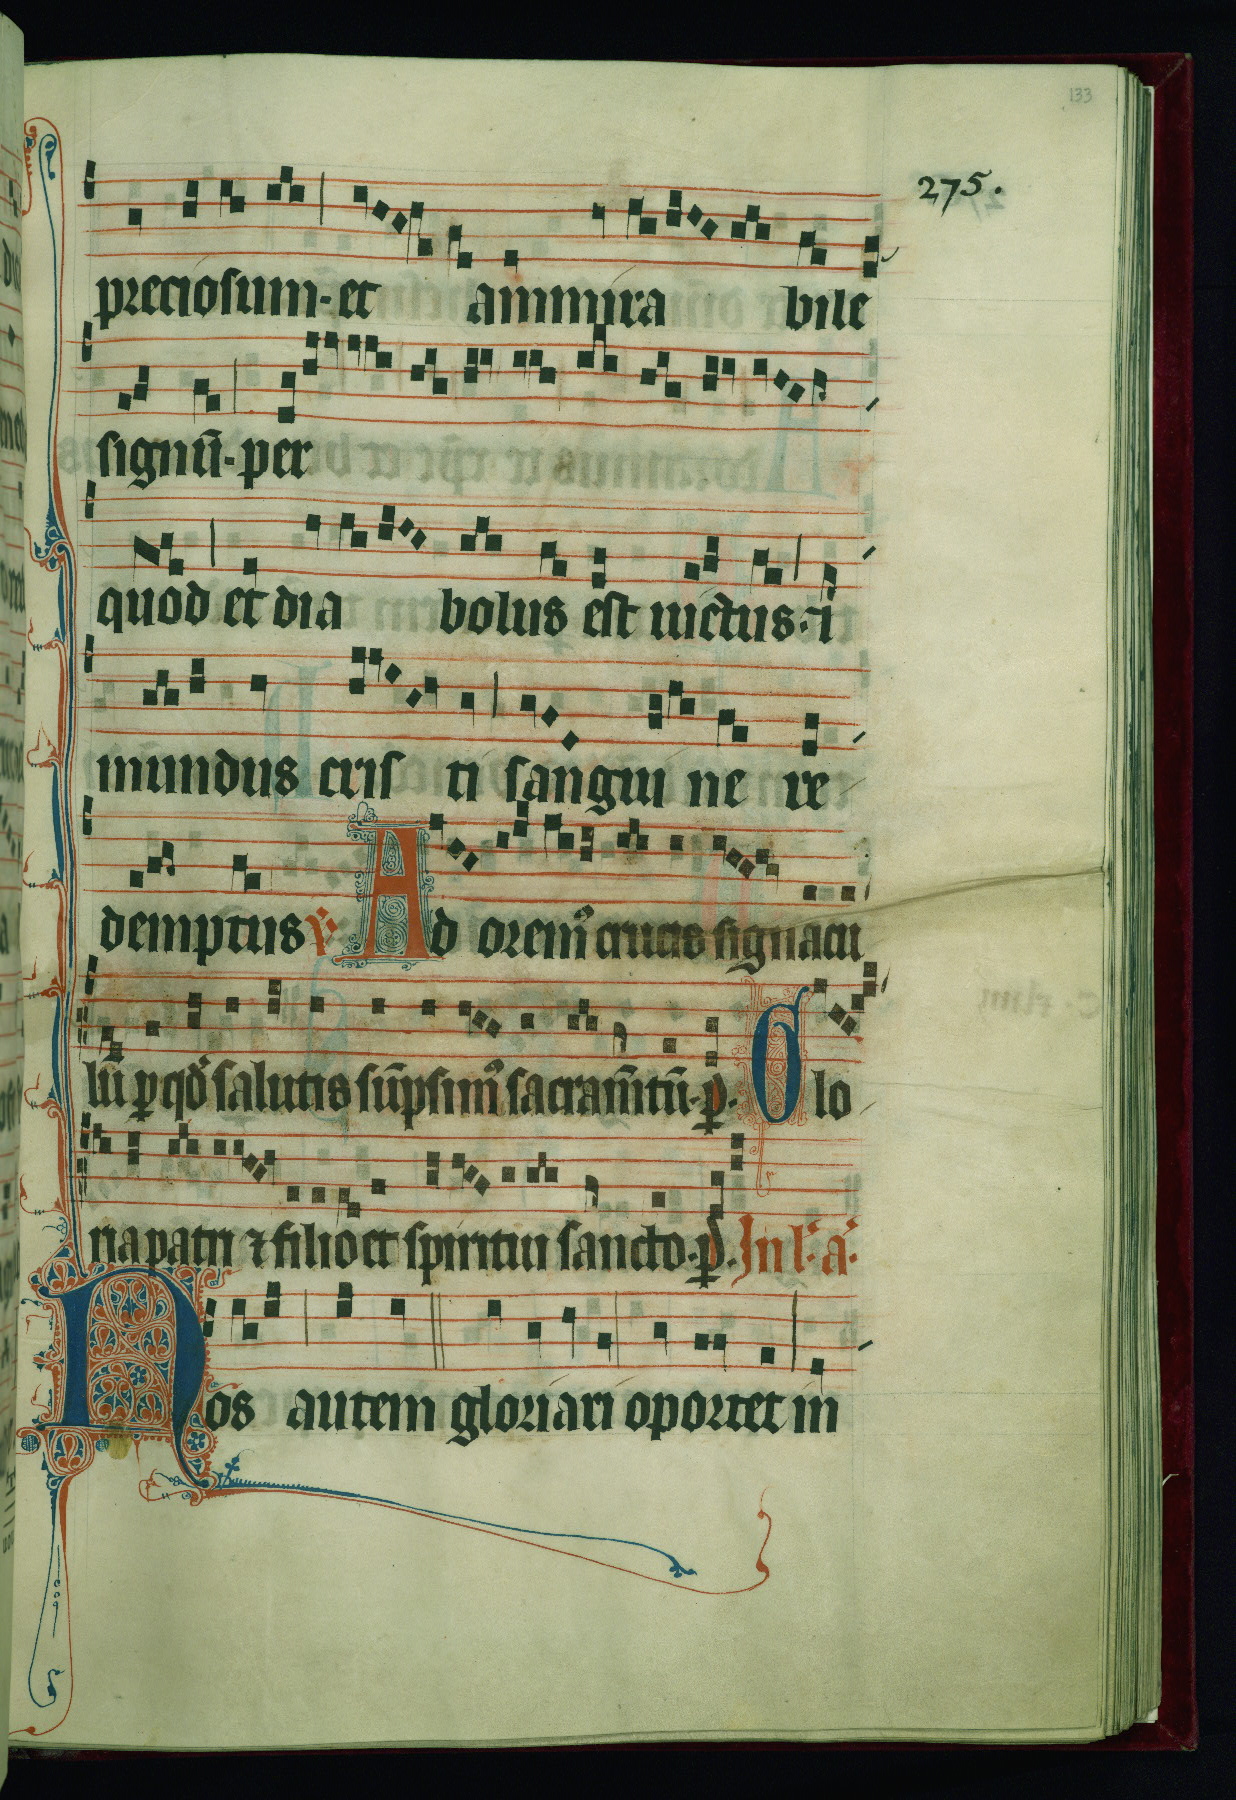 133
275.
preciosum· et ammira bile
signū· per
quod et dia bolus est uictus· ī
mundus cris ti sangui ne re
demptus ꝟ· Ad orem᷒ crucis signacu
lū ꝑ qd̓ salutis sūpsim᷒ sacram̄tū· ꝑ· Glo
ria patri ⁊ filio et spiritui sancto· ꝑ· In l̓· a̓·
Nos autem gloriari oportet in